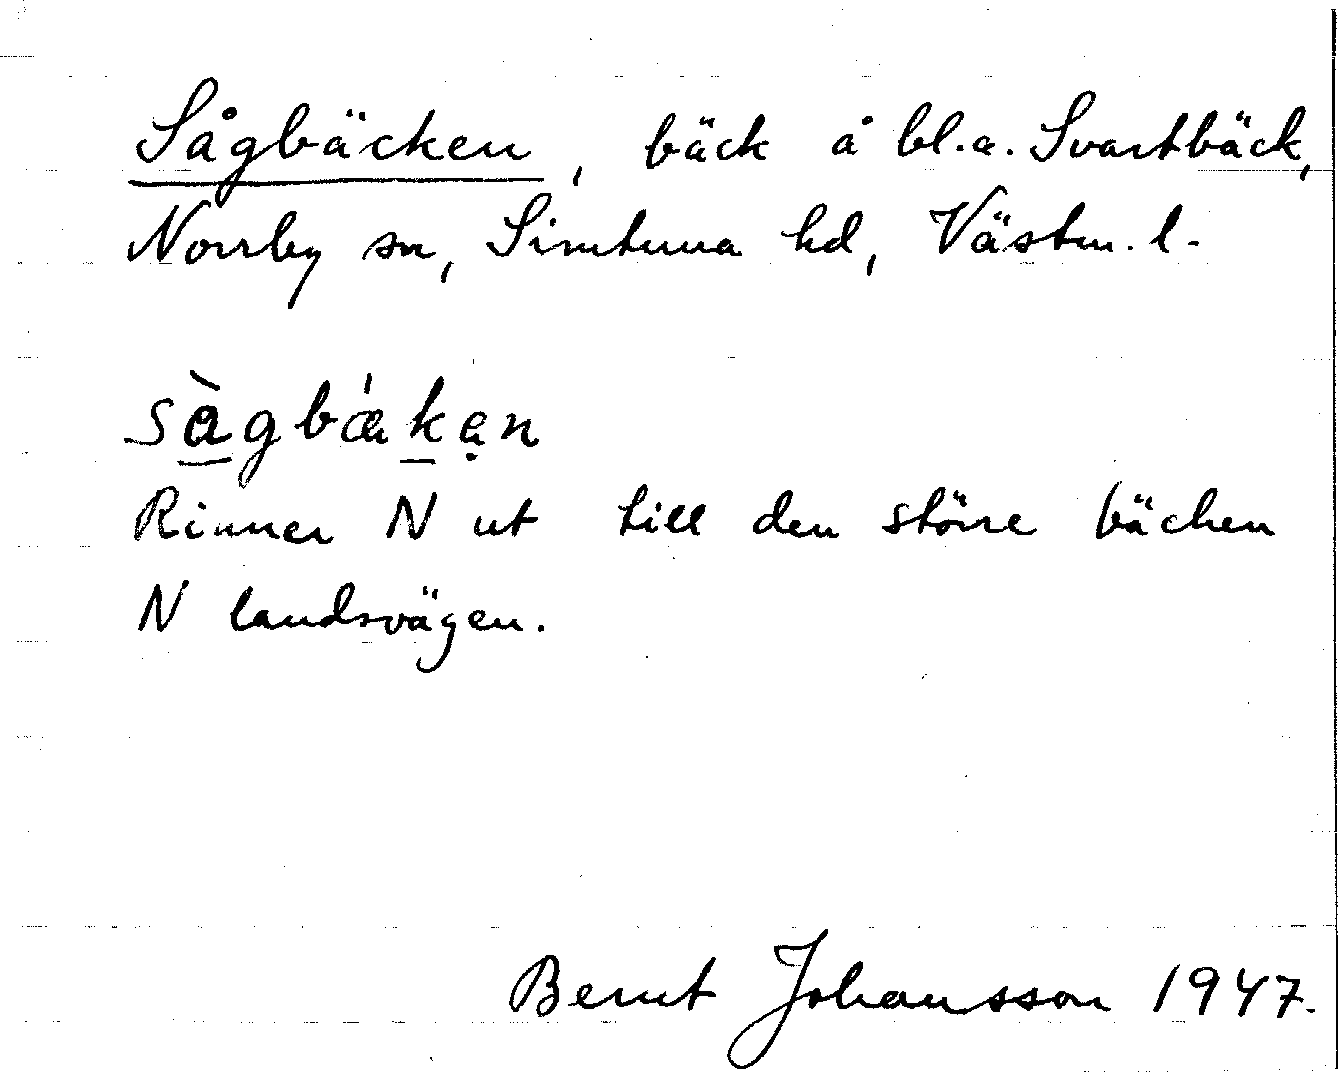 Sågbäcken, bäck å bl.a. Svartbäck,
Norrby sn, Simtuna hd, Västm. l.
sàgbǽkən
Rinner N ut till den större bäcken
N landsvägen.
Bernt Johansson 1947.